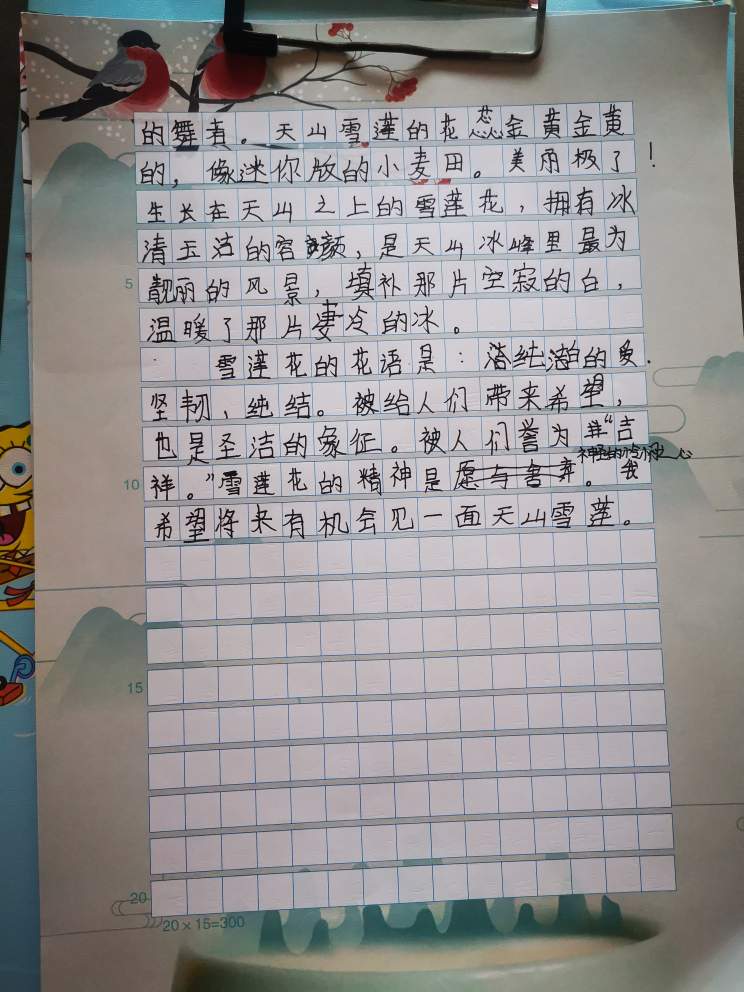 的舞者。天山雪莲的花蕊金黄金黄
的，像迷你版的小麦田。美丽极了！
生长在天山之上的雪莲花，拥有冰
清玉洁的容颜，是天山冰峰里最为
5 靓丽的风景，填补那片空寂的白，
温暖了那片凄冷的冰。
雪莲花的花语是：纯洁的爱.
坚韧、纯结。被给人们带来希望，
也是圣洁的象征。被人们誉为“吉
10 祥。”雪莲花的精神是。我
希望将来有机会见一面天山雪莲。
15
20
20×15=300